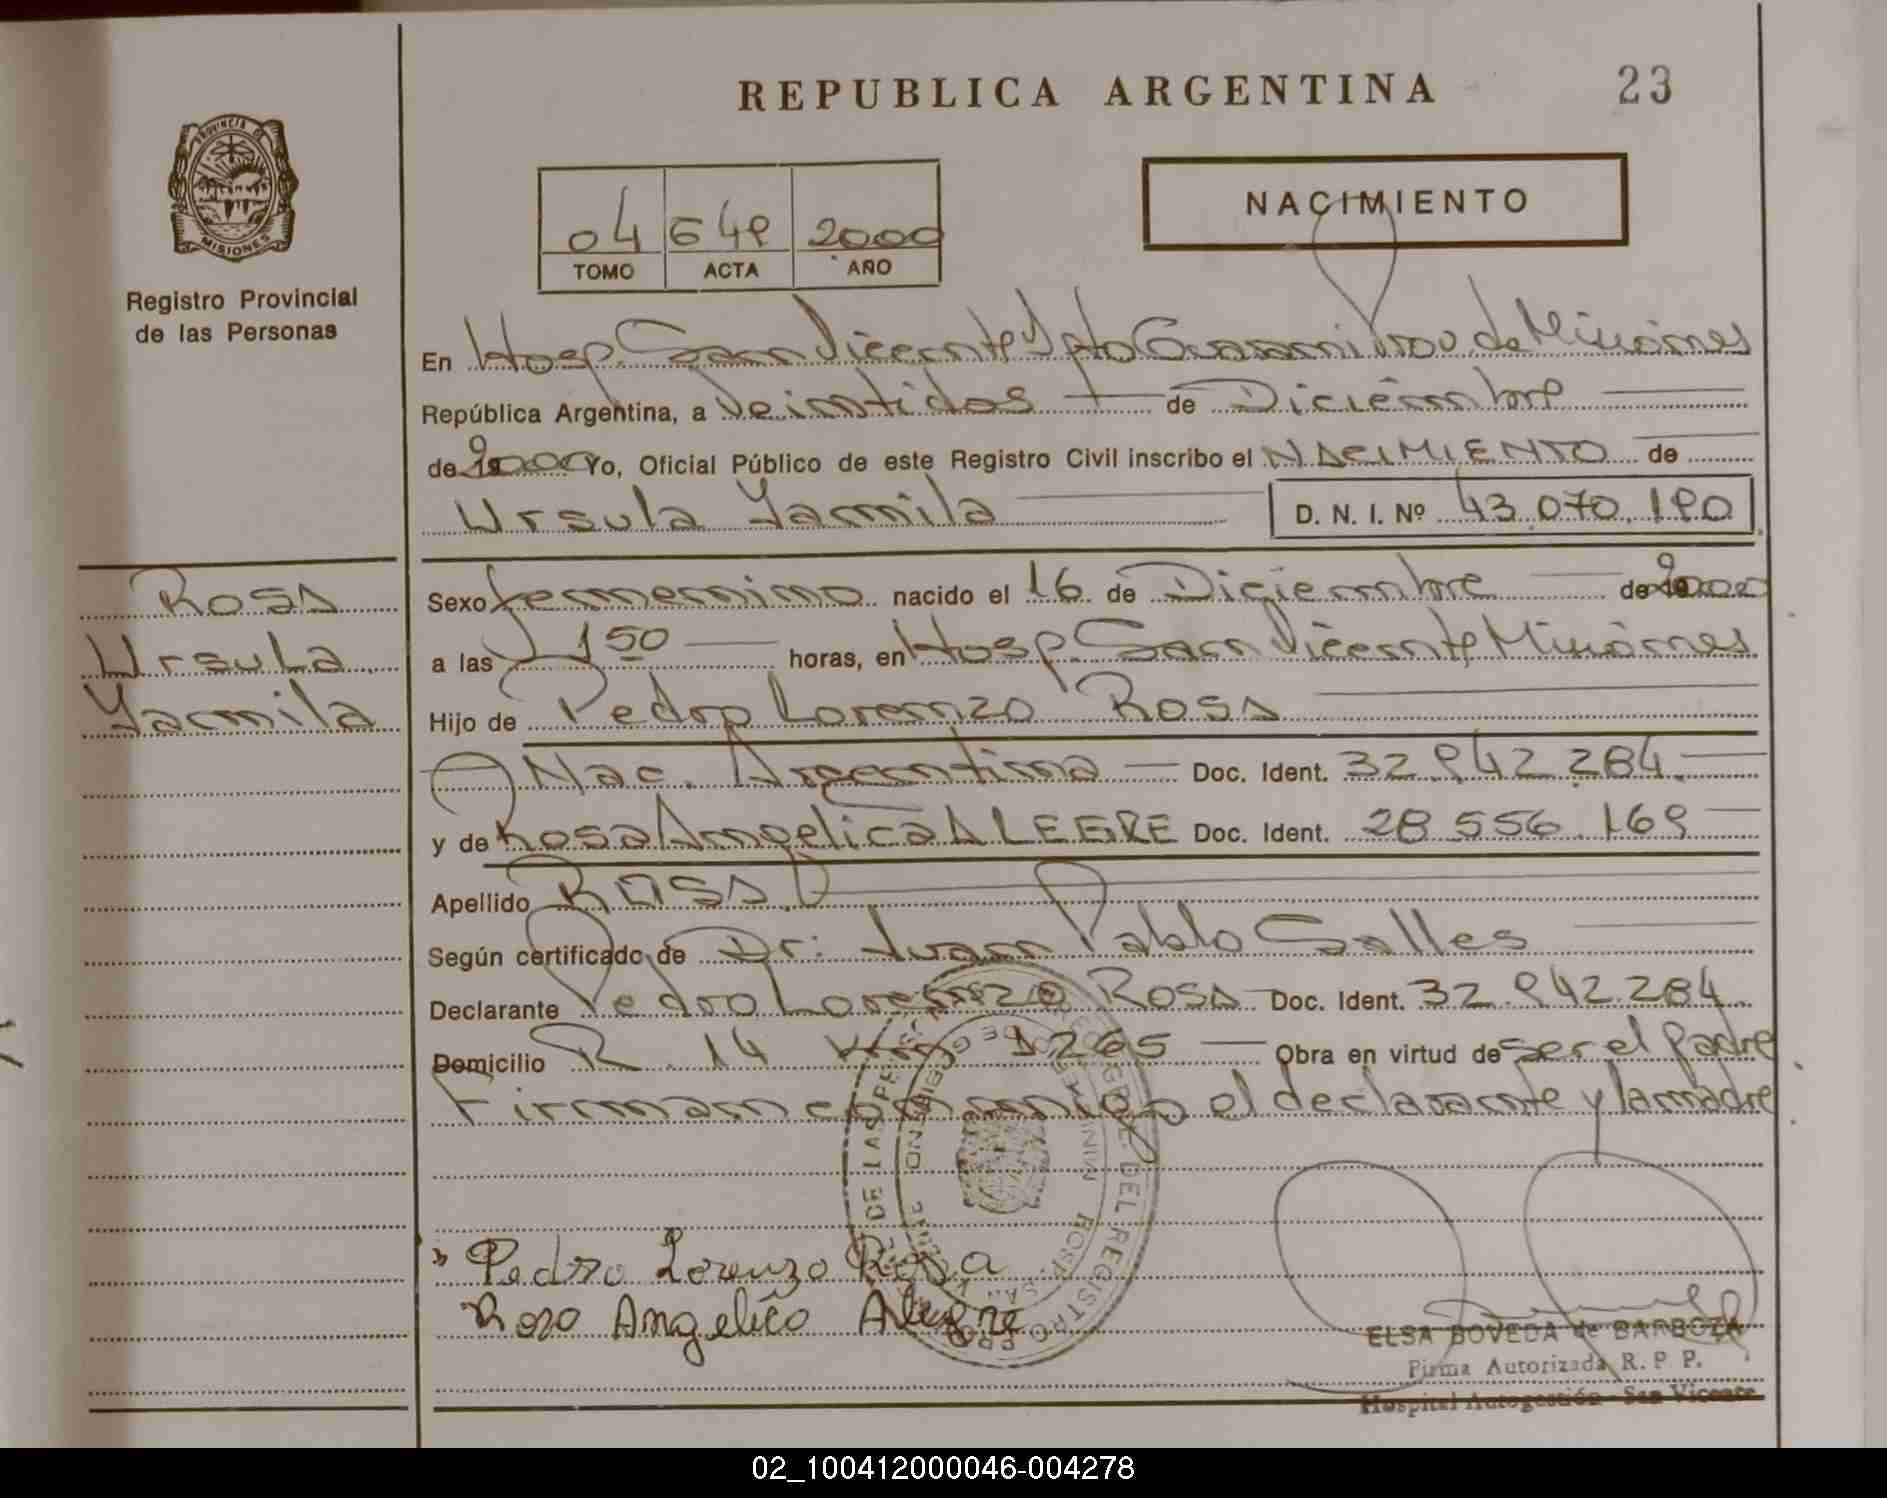 REPUBLICA ARGENTINA
23
PROVINCIA DE
MISIONES
Registro Provincial
de las Personas
04 649 2000
TOMO ACTA AÑO
NACIMIENTO
En Hosp. San Vicente Dpto Guarani Prov. de Misiones
República Argentina, a Veintidos de Diciembre
de 2000 Yo, Oficial Público de este Registro Civil inscribo el NACIMIENTO de
Ursula Yamila D. N. I. Nº 43.070.190
ROSA
Ursula
Yamila
Sexo femenino nacido el 16 de Diciembre de 2000
a las 1 50 horas, en Hosp. San Vicente Misiones
Hijo de Pedro Lorenzo ROSA
Nac. Argentina Doc. Ident. 32.942.284.
y de Rosa Angelica ALEGRE Doc. Ident. 28.556.169
Apellido ROSA
Según certificado de Dr: Juan Pablo Salles
Declarante Pedro Lorenzo ROSA Doc. Ident. 32.942.284
Domicilio R. 14 Km 1265 Obra en virtud de ser el padre
Firman conmigo el declarante y la madre
Pedro Lorenzo Rosa
Rosa Angelica Alegre
ELSA BOVEDA de BARBOZA
Firma Autorizada R. P. P.
Hospital Autogestión - San Vicente
02_100412000046-004278